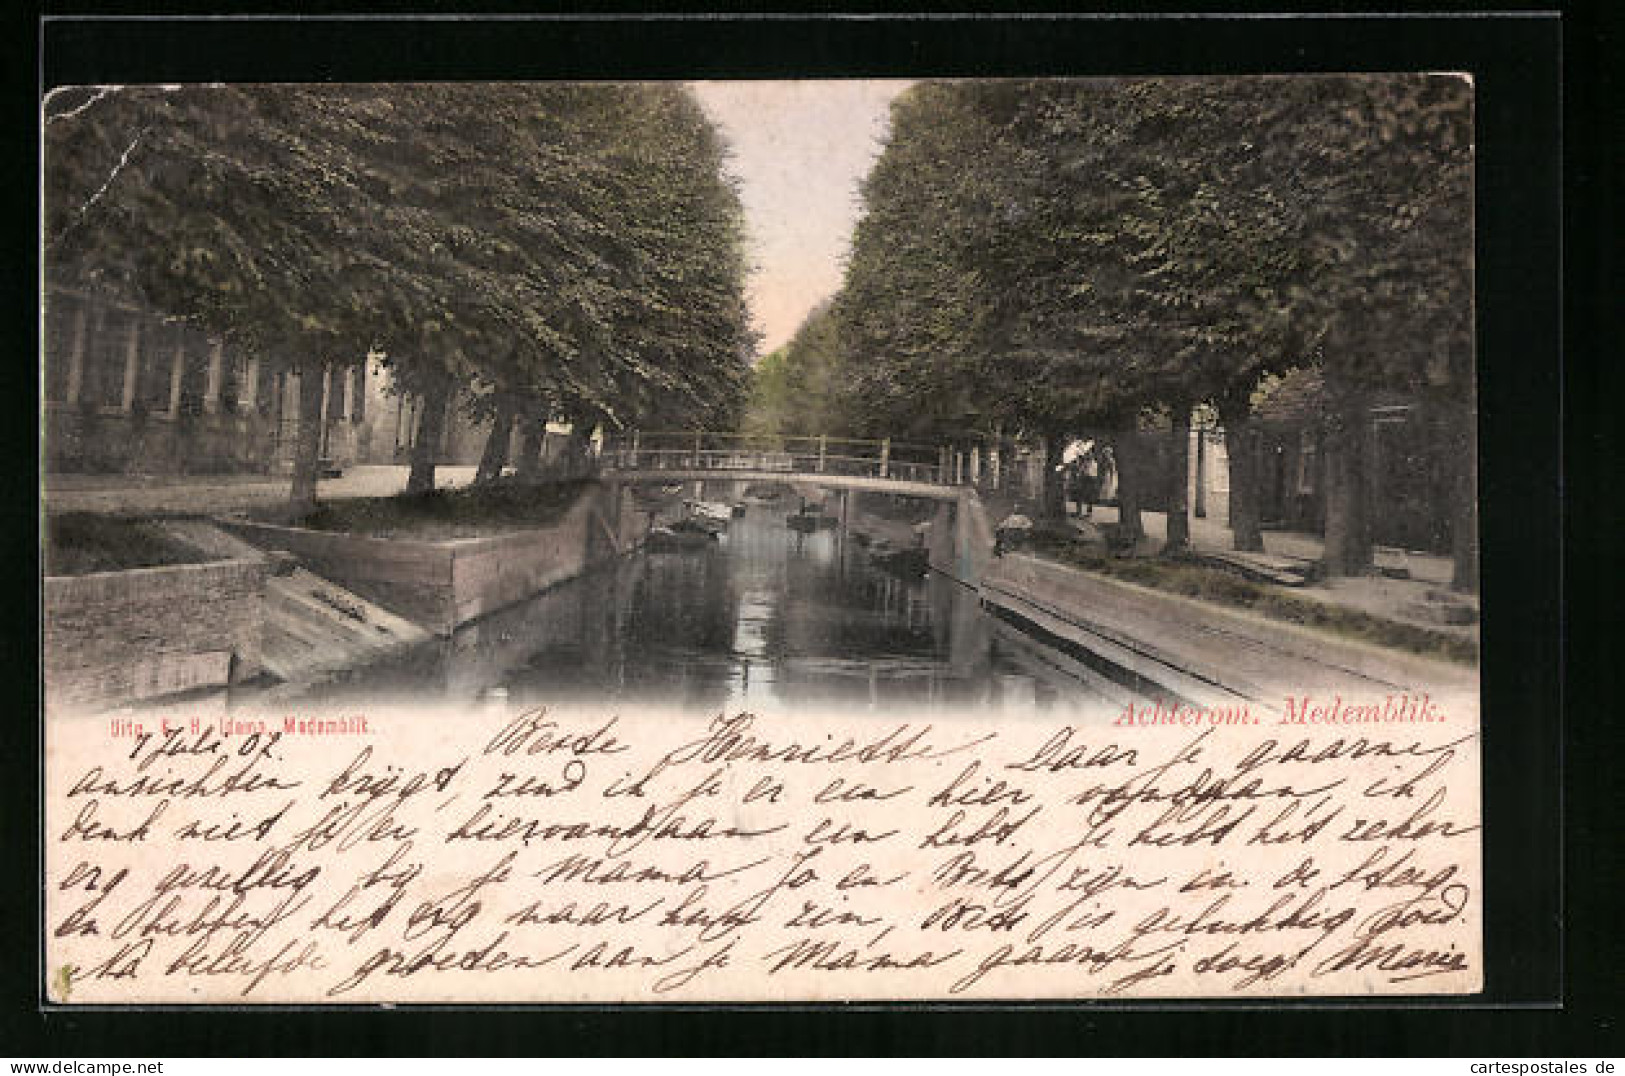 Achterom. Medemblik.
Uitg. K. H. Idema, Medemblik.
7 Juli 02 Beste Henriette. Daar je gaarne
ansichten krijgt, zend ik je er een hier vandaan, ik
denk niet je er hiervandaan een hebt. Je hebt het zeker
erg gezellig bij je Mama. Jo en Bets zijn in de
en hebben het erg naar hun zin, Bets is gelukkig goed.
Na beleefde groeten aan je Mama gaarne je Marie
cartespostales de